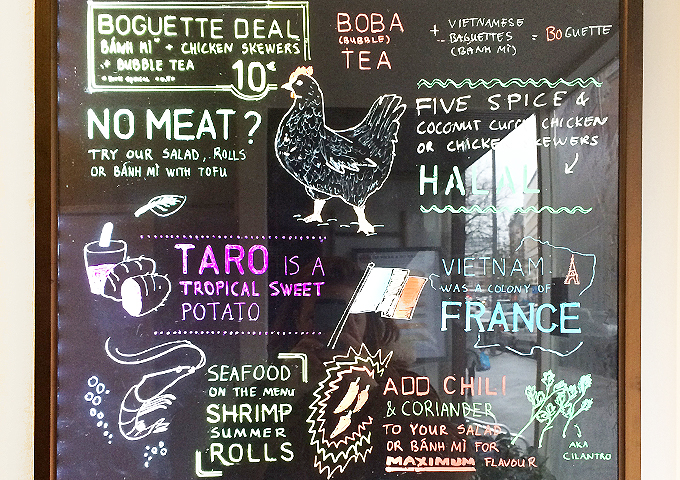 BOGUETTE DEAL
BÁNH MÌ* + CHICKEN SKEWERS
+ BUBBLE TEA
10€
BOBA
(BUBBLE)
TEA
+ VIETNAMESE
BAGUETTES
(BÁNH MÌ)
= BOGUETTE
NO MEAT?
TRY OUR SALAD, ROLLS
OR BÁNH MÌ WITH TOFU
FIVE SPICE &
COCONUT CURRY CHICKEN
OR CHICKEN SKEWERS
HALAL
TARO IS A
TROPICAL SWEET
POTATO
VIETNAM
WAS A COLONY OF
FRANCE
SEAFOOD
ON THE MENU
SHRIMP
SUMMER
ROLLS
ADD CHILI
& CORIANDER
TO YOUR SALAD
OR BÁNH MÌ FOR
MAXIMUM FLAVOUR
AKA
CILANTRO